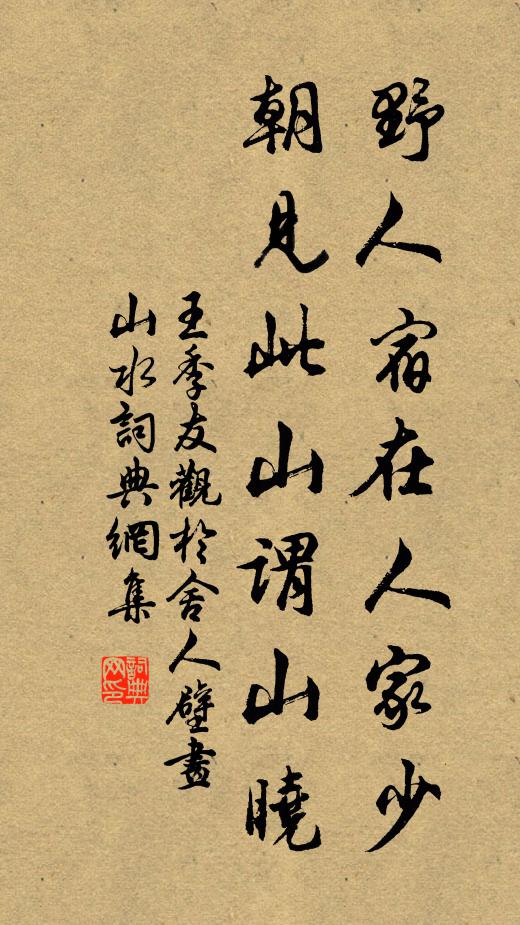 野人宿在人家少
朝見此山謂山曉
王季友觀於舍人壁畫
山水詞典網集
詞典
网印